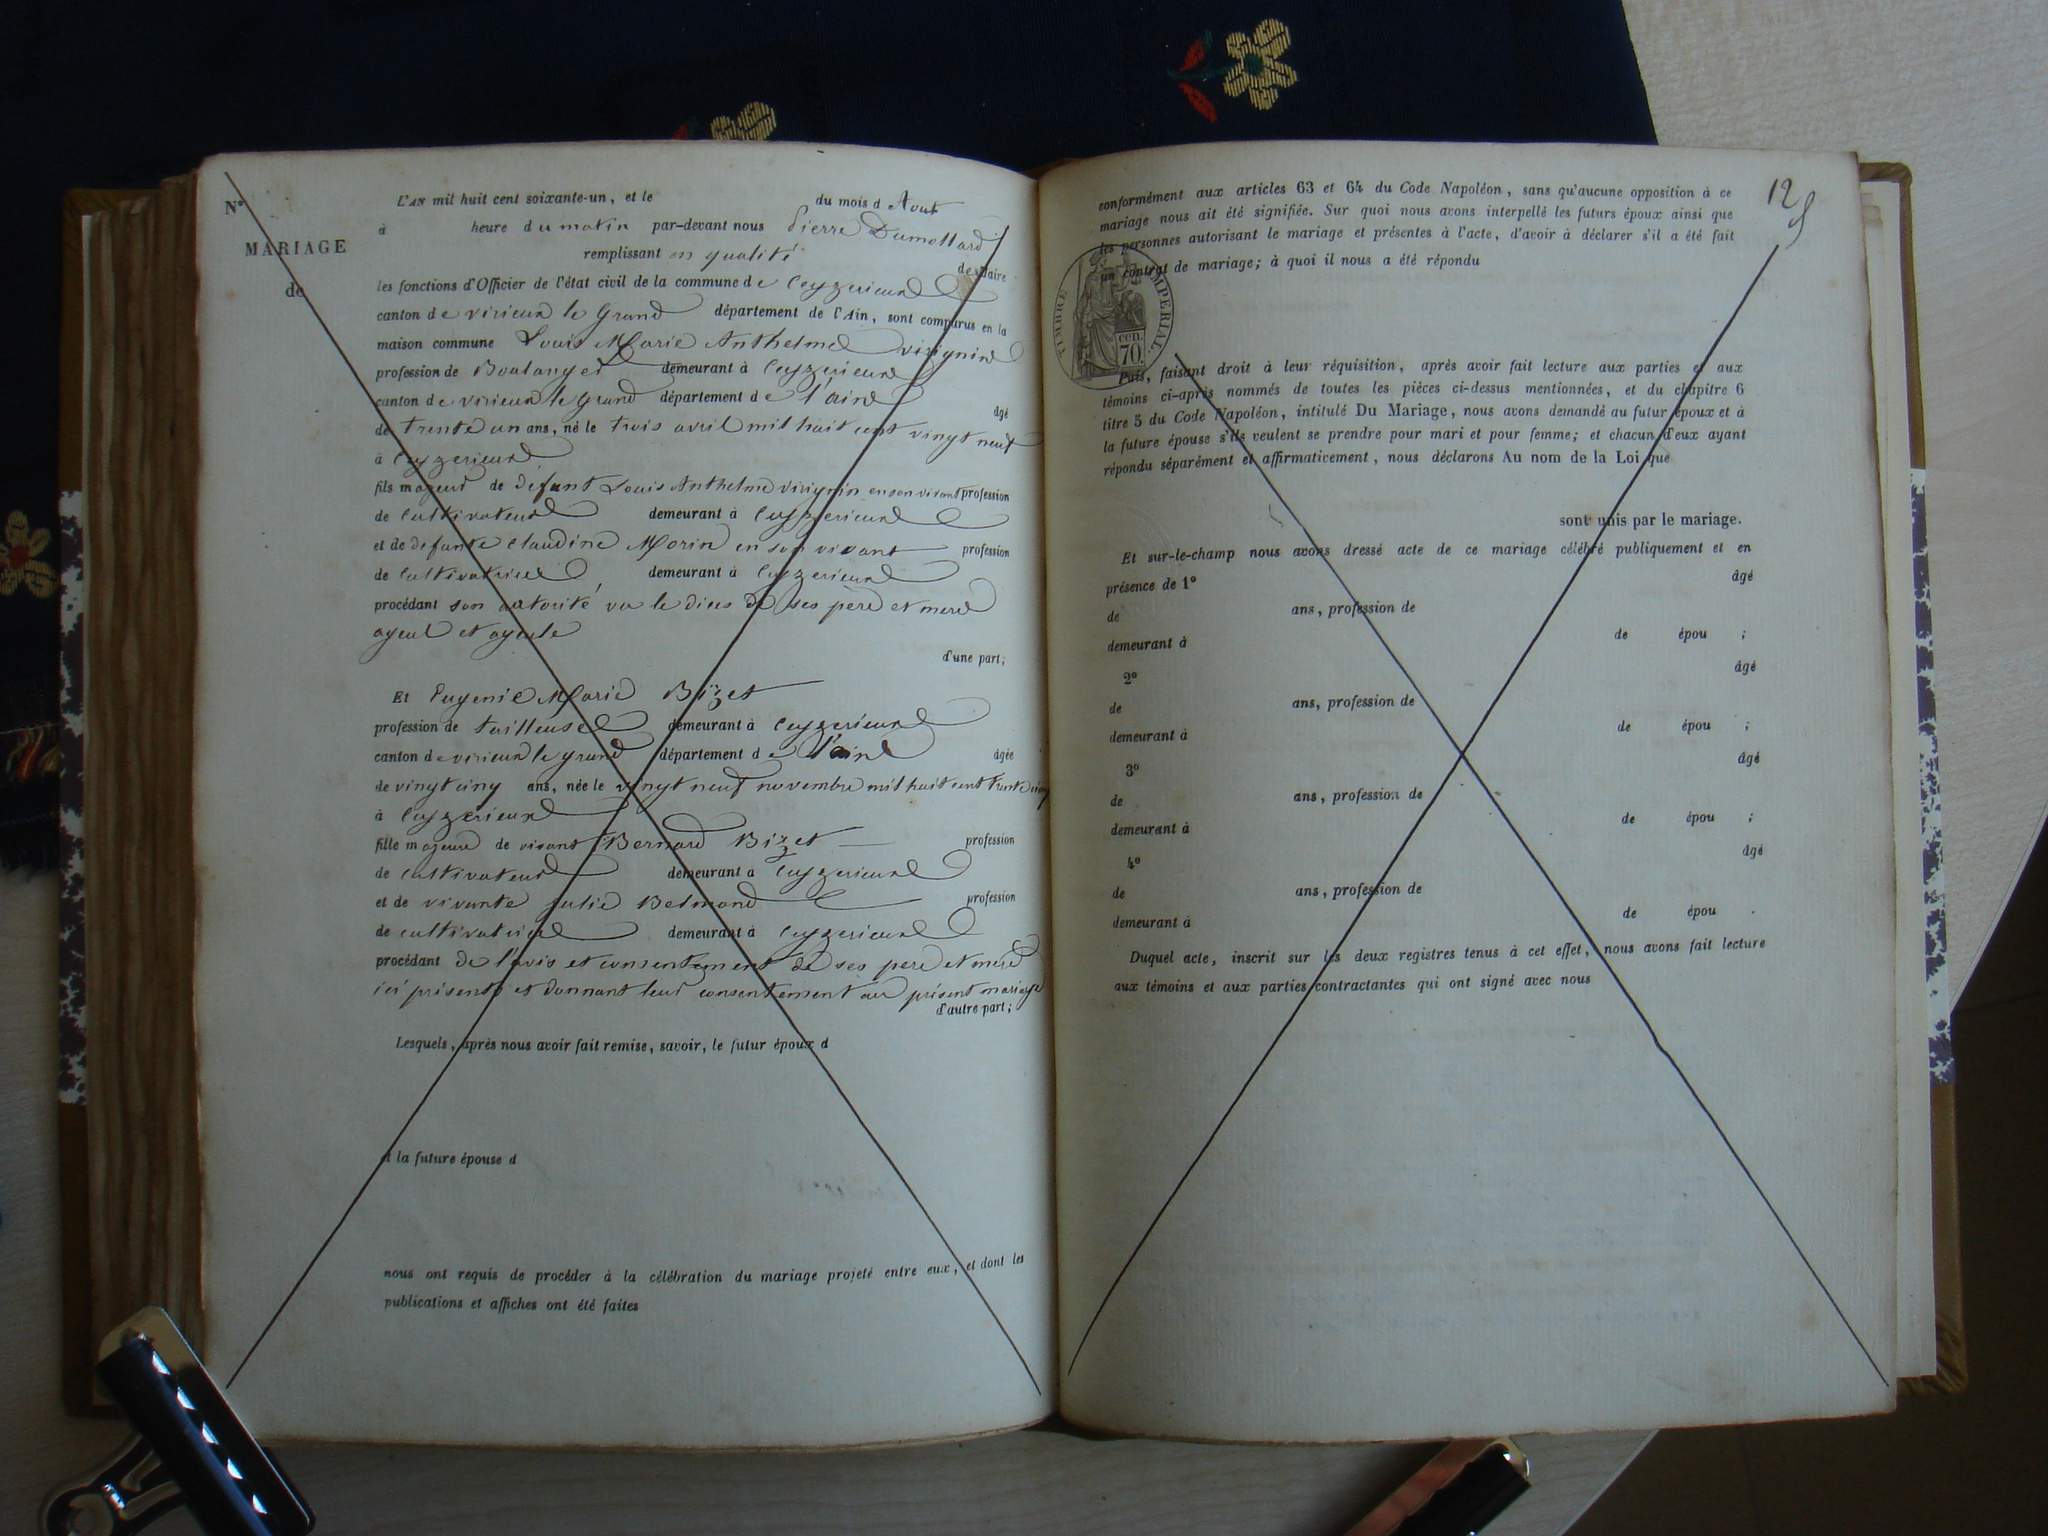 N°
MARIAGE
de
L'AN mil huit cent soixante-un, et le du mois d Aout
à heure du matin par-devant nous Pierre Dumollard
remplissant en qualité
de Maire
les fonctions d'Officier de l'état civil de la commune de Ceyzerieux
canton de virieux le Grand département de l'Ain, sont comparus en la
maison commune Louis Marie Anthelme virignin
profession de Boulanger demeurant à Ceyzerieux
canton de virieux le Grand département de l'ain âgé
de trente un ans, né le trois avril mil huit cent vingt neuf
à Ceyzerieux
fils majeur de défunt Louis Anthelme virignin en son vivant profession
de Cultivateur demeurant à Ceyzerieux
et de defunte claudine Morin en son vivant profession
de Cultivatrice demeurant à Ceyzerieux
procédant son autorité vu le dices de ses pere et mere
ayeul et ayeule
d'une part;
Et Eugenie Marie Bizet
profession de tailleuse demeurant à Ceyzerieux
canton de virieux le grand département de l'ain âgée
de vingt cinq ans, née le vingt neuf novembre mil huit cent trente cinq
à Ceyzerieux
fille majeure de vivant Bernard Bizet profession
de Cultivateur demeurant à Ceyzerieux
et de vivante Julie Belmond profession
de cultivatrice demeurant à Ceyzerieux
procédant de l'avis et consentement de ses pere et mere
ici présents et donnant leur consentement au présent mariage
d'autre part;
Lesquels, après nous avoir fait remise, savoir, le futur époux d
et la future épouse d
nous ont requis de procéder à la célébration du mariage projeté entre eux, et dont les
publications et affiches ont été faites
12
conformément aux articles 63 et 64 du Code Napoléon, sans qu'aucune opposition à ce
mariage nous ait été signifiée. Sur quoi nous avons interpellé les futurs époux ainsi que
les personnes autorisant le mariage et présentes à l'acte, d'avoir à déclarer s'il a été fait
un contrat de mariage; à quoi il nous a été répondu
TIMBRE IMPERIAL.
CEN.
70.
Puis, faisant droit à leur réquisition, après avoir fait lecture aux parties et aux
témoins ci-après nommés de toutes les pièces ci-dessus mentionnées, et du chapitre 6
titre 5 du Code Napoléon, intitulé Du Mariage, nous avons demandé au futur époux et à
la future épouse s'ils veulent se prendre pour mari et pour femme; et chacun d'eux ayant
répondu séparément et affirmativement, nous déclarons Au nom de la Loi que
sont unis par le mariage.
Et sur-le-champ nous avons dressé acte de ce mariage célébré publiquement et en
présence de 1° âgé
de ans, profession de
demeurant à de épou ;
2° âgé
de ans, profession de
demeurant à de épou ;
3° âgé
de ans, profession de
demeurant à de épou ;
4° âgé
de ans, profession de
demeurant à de épou .
Duquel acte, inscrit sur les deux registres tenus à cet effet, nous avons fait lecture
aux témoins et aux parties contractantes qui ont signé avec nous